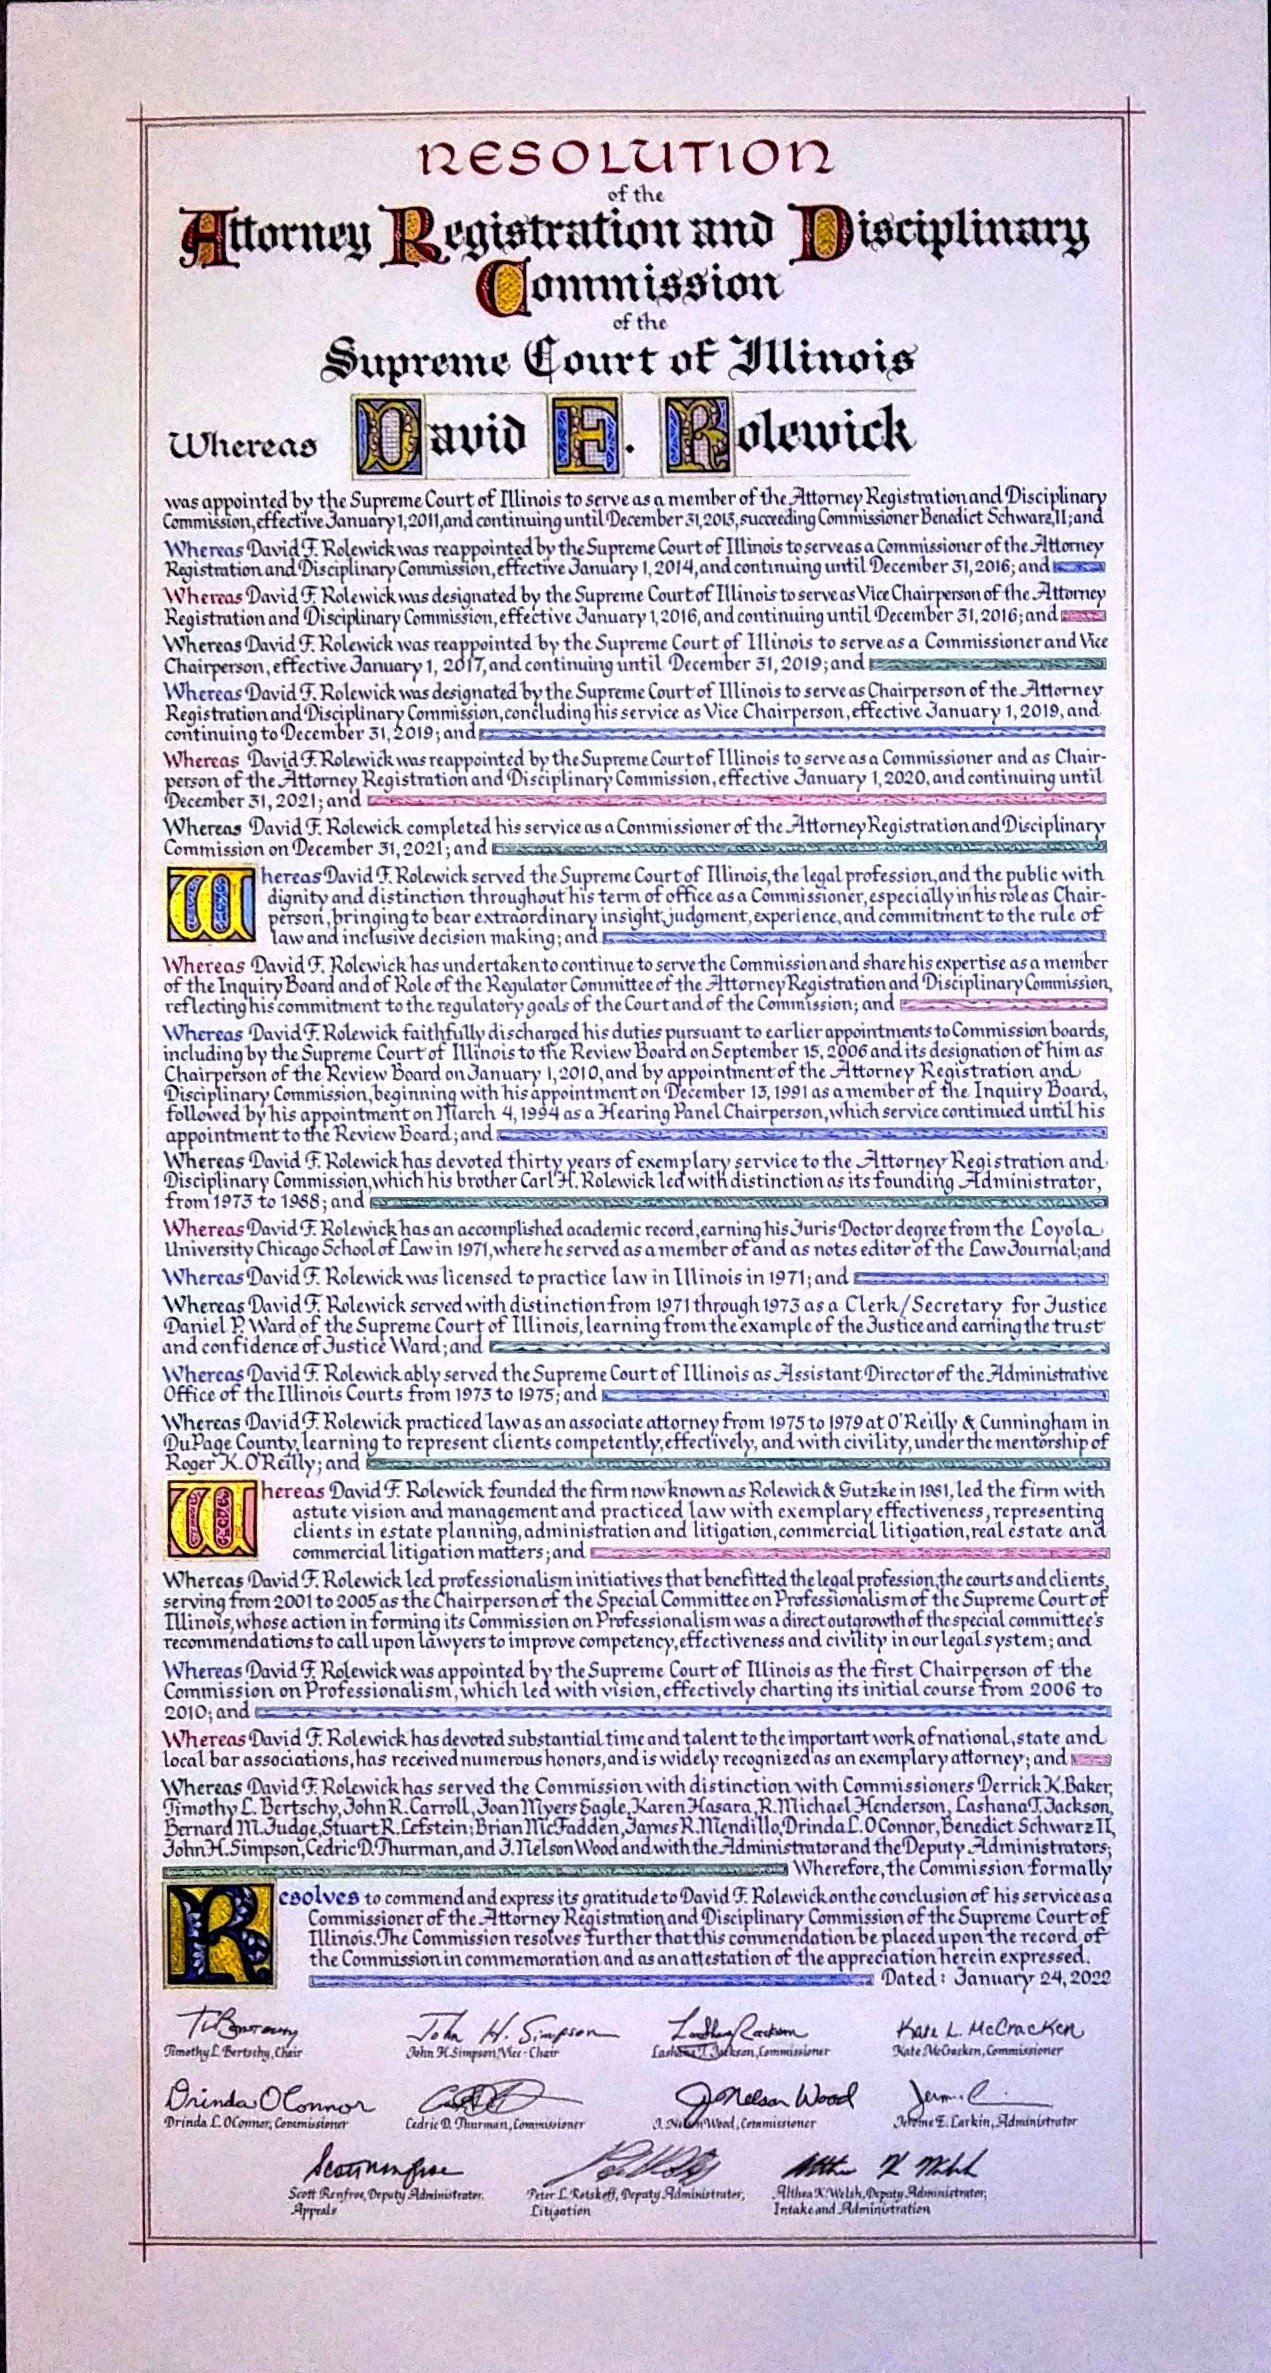 RESOLUTION
of the
Attorney Registration and Disciplinary
Commission
of the
Supreme Court of Illinois
Whereas David F. Rolewick
was appointed by the Supreme Court of Illinois to serve as a member of the Attorney Registration and Disciplinary
Commission, effective January 1, 2011, and continuing until December 31, 2013, succeeding Commissioner Benedict Schwarz, II; and
Whereas David F. Rolewick was reappointed by the Supreme Court of Illinois to serve as a Commissioner of the Attorney
Registration and Disciplinary Commission, effective January 1, 2014, and continuing until December 31, 2016; and
Whereas David F. Rolewick was designated by the Supreme Court of Illinois to serve as Vice Chairperson of the Attorney
Registration and Disciplinary Commission, effective January 1, 2016, and continuing until December 31, 2016; and
Whereas David F. Rolewick was reappointed by the Supreme Court of Illinois to serve as a Commissioner and Vice
Chairperson, effective January 1, 2017, and continuing until December 31, 2019; and
Whereas David F. Rolewick was designated by the Supreme Court of Illinois to serve as Chairperson of the Attorney
Registration and Disciplinary Commission, concluding his service as Vice Chairperson, effective January 1, 2019, and
continuing to December 31, 2019; and
Whereas David F. Rolewick was reappointed by the Supreme Court of Illinois to serve as a Commissioner and as Chair-
person of the Attorney Registration and Disciplinary Commission, effective January 1, 2020, and continuing until
December 31, 2021; and
Whereas David F. Rolewick completed his service as a Commissioner of the Attorney Registration and Disciplinary
Commission on December 31, 2021; and
Whereas David F. Rolewick served the Supreme Court of Illinois, the legal profession, and the public with
dignity and distinction throughout his term of office as a Commissioner, especially in his role as Chair-
person, bringing to bear extraordinary insight, judgment, experience, and commitment to the rule of
law and inclusive decision making; and
Whereas David F. Rolewick has undertaken to continue to serve the Commission and share his expertise as a member
of the Inquiry Board and of Role of the Regulator Committee of the Attorney Registration and Disciplinary Commission,
reflecting his commitment to the regulatory goals of the Court and of the Commission; and
Whereas David F. Rolewick faithfully discharged his duties pursuant to earlier appointments to Commission boards,
including by the Supreme Court of Illinois to the Review Board on September 15, 2006 and its designation of him as
Chairperson of the Review Board on January 1, 2010, and by appointment of the Attorney Registration and
Disciplinary Commission, beginning with his appointment on December 13, 1991 as a member of the Inquiry Board,
followed by his appointment on March 4, 1994 as a Hearing Panel Chairperson, which service continued until his
appointment to the Review Board; and
Whereas David F. Rolewick has devoted thirty years of exemplary service to the Attorney Registration and
Disciplinary Commission, which his brother Carl H. Rolewick led with distinction as its founding Administrator,
from 1973 to 1988; and
Whereas David F. Rolewick has an accomplished academic record, earning his Juris Doctor degree from the Loyola
University Chicago School of Law in 1971, where he served as a member of and as notes editor of the Law Journal; and
Whereas David F. Rolewick was licensed to practice law in Illinois in 1971; and
Whereas David F. Rolewick served with distinction from 1971 through 1973 as a Clerk/Secretary for Justice
Daniel P. Ward of the Supreme Court of Illinois, learning from the example of the Justice and earning the trust
and confidence of Justice Ward; and
Whereas David F. Rolewick ably served the Supreme Court of Illinois as Assistant Director of the Administrative
Office of the Illinois Courts from 1973 to 1975; and
Whereas David F. Rolewick practiced law as an associate attorney from 1975 to 1979 at O'Reilly & Cunningham in
DuPage County, learning to represent clients competently, effectively, and with civility, under the mentorship of
Roger K. O'Reilly; and
Whereas David F. Rolewick founded the firm now known as Rolewick & Gutzke in 1981, led the firm with
astute vision and management and practiced law with exemplary effectiveness, representing
clients in estate planning, administration and litigation, commercial litigation, real estate and
commercial litigation matters; and
Whereas David F. Rolewick led professionalism initiatives that benefitted the legal profession, the courts and clients,
serving from 2001 to 2005 as the Chairperson of the Special Committee on Professionalism of the Supreme Court of
Illinois, whose action in forming its Commission on Professionalism was a direct outgrowth of the special committee's
recommendations to call upon lawyers to improve competency, effectiveness and civility in our legal system; and
Whereas David F. Rolewick was appointed by the Supreme Court of Illinois as the first Chairperson of the
Commission on Professionalism, which led with vision, effectively charting its initial course from 2006 to
2010; and
Whereas David F. Rolewick has devoted substantial time and talent to the important work of national, state and
local bar associations, has received numerous honors, and is widely recognized as an exemplary attorney; and
Whereas David F. Rolewick has served the Commission with distinction with Commissioners Derrick K. Baker,
Timothy L. Bertschy, John R. Carroll, Joan Myers Eagle, Karen Hasara, R. Michael Henderson, Lashana T. Jackson,
Bernard M. Judge, Stuart R. Lefstein, Brian McFadden, James R. Mendillo, Drinda L. O'Connor, Benedict Schwarz II,
John H. Simpson, Cedric D. Thurman, and J. Nelson Wood and with the Administrator and the Deputy Administrators;
Wherefore, the Commission formally
Resolves to commend and express its gratitude to David F. Rolewick on the conclusion of his service as a
Commissioner of the Attorney Registration and Disciplinary Commission of the Supreme Court of
Illinois. The Commission resolves further that this commendation be placed upon the record of
the Commission in commemoration and as an attestation of the appreciation herein expressed.
Dated: January 24, 2022
John H. Simpson Kate L. McCracken
Timothy L. Bertschy, Chair John H. Simpson, Vice-Chair Lashana T. Jackson, Commissioner Kate McCracken, Commissioner
Drinda O'Connor J. Nelson Wood
Drinda L. O'Connor, Commissioner Cedric D. Thurman, Commissioner J. Nelson Wood, Commissioner Jerome E. Larkin, Administrator
Scott Renfroe, Deputy Administrator, Peter L. Rotskoff, Deputy Administrator, Althea K. Welsh, Deputy Administrator,
Appeals Litigation Intake and Administration